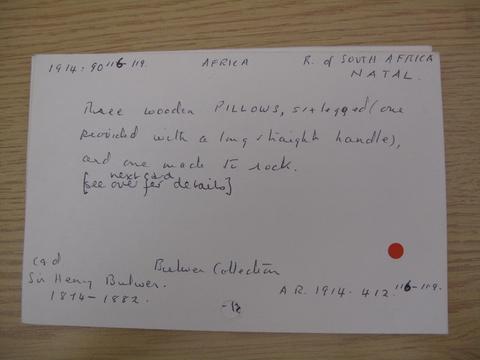 1914.90 116-119. AFRICA R. of SOUTH AFRICA
NATAL.
Three wooden PILLOWS, six legged (one
provided with a long straight handle),
and one made to rock.
next card
[see over for details]
cd Bulwer Collection
Sir Henry Bulwer.
1874-1882.
A.R. 1914. 412. 116-119.